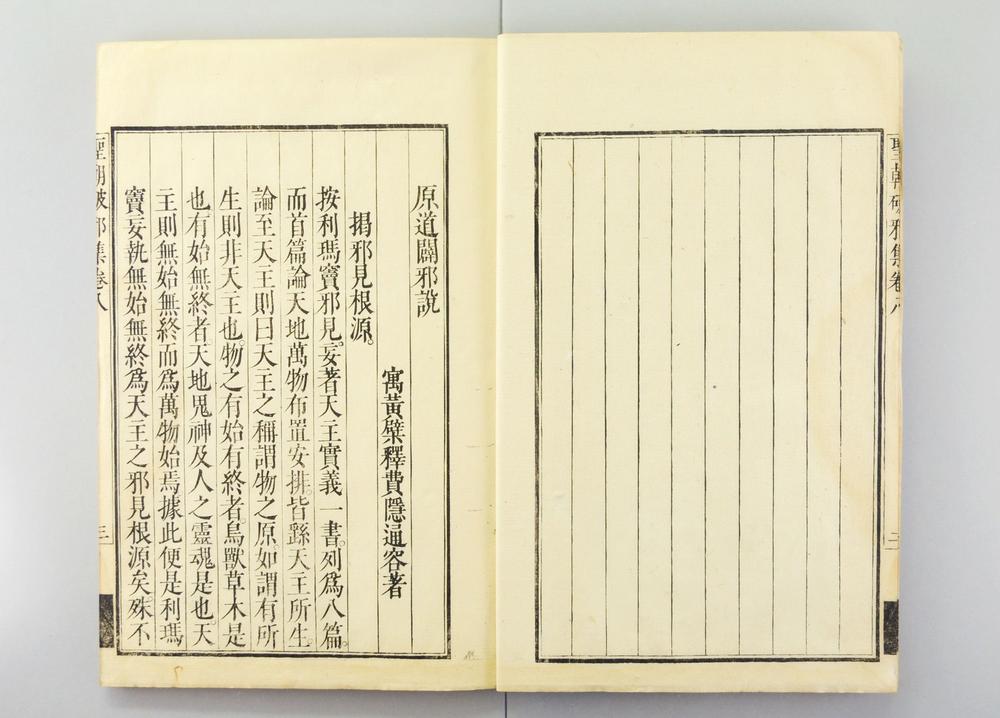 聖朝破邪集卷八
三
原道闢邪說
寓黃檗釋費隱通容著
揭邪見根源。
按利瑪竇邪見。妄著天主實義一書。列爲八篇。
而首篇論天地萬物布置安排。皆繇天主所生。
論至天主則曰天主之稱謂物之原如謂有所
生則非天主也。物之有始有終者。鳥獸草木是
也有始無終者天地鬼神及人之靈魂是也天
主則無始無終而爲萬物始焉據此便是利瑪
竇妄執無始無終爲天主之邪見根源矣殊不
聖朝破邪集卷八
三